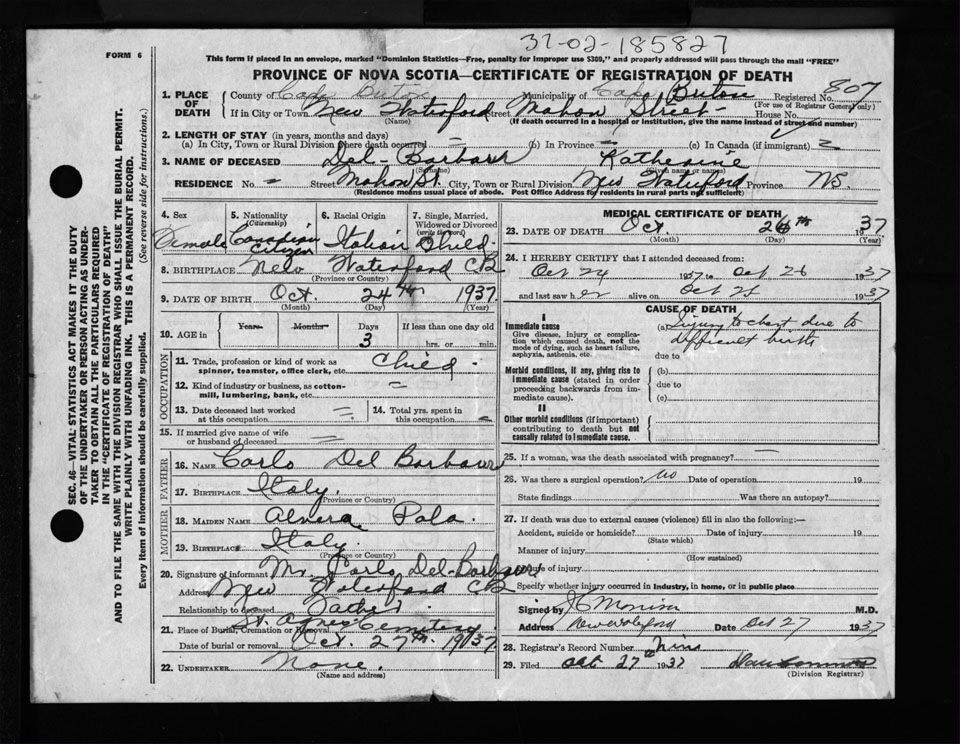 37-02-185827
FORM 6
This form if placed in an envelope, marked "Dominion Statistics—Free, penalty for improper use $300," and properly addressed will pass through the mail "FREE"
PROVINCE OF NOVA SCOTIA—CERTIFICATE OF REGISTRATION OF DEATH
SEC. 46—VITAL STATISTICS ACT MAKES IT THE DUTY
OF THE UNDERTAKER OR PERSON ACTING AS UNDER-
TAKER TO OBTAIN ALL THE PARTICULARS REQUIRED
IN THE "CERTIFICATE OF REGISTRATION OF DEATH"
AND TO FILE THE SAME WITH THE DIVISION REGISTRAR WHO SHALL ISSUE THE BURIAL PERMIT.
WRITE PLAINLY WITH UNFADING INK. THIS IS A PERMANENT RECORD.
Every item of information should be carefully supplied. (See reverse side for instructions.)
1. PLACE OF DEATH County of Cape Breton Municipality of Cape Breton Registered No. 807
(For use of Registrar General only)
If in City or Town New Waterford Street Mahon Street House No.
(Name) (If death occurred in a hospital or institution, give the name instead of street and number)
2. LENGTH OF STAY (in years, months and days)
(a) In City, Town or Rural Division where death occurred (b) In Province (c) In Canada (if immigrant)
3. NAME OF DECEASED Del-Barbara Katherine
(Surname) (Given name or names)
RESIDENCE No. Street Mahon St. City, Town or Rural Division New Waterford Province NS.
(Residence means usual place of abode. Post Office Address for residents in rural parts not sufficient)
4. Sex Female
5. Nationality (Citizenship) Canadian Citizen
6. Racial Origin Italian
7. Single, Married, Widowed or Divorced (write the word) Child
8. BIRTHPLACE New Waterford CB
(Province or Country)
9. DATE OF BIRTH Oct. 24th 1937
(Month) (Day) (Year)
10. AGE in Years Months Days 3 If less than one day old hrs. or min.
OCCUPATION
11. Trade, profession or kind of work as spinner, teamster, office clerk, etc. Child
12. Kind of industry or business, as cotton-mill, lumbering, bank, etc.
13. Date deceased last worked at this occupation
14. Total yrs. spent in this occupation
15. If married give name of wife or husband of deceased
FATHER
16. NAME Carlo Del Barbara
17. BIRTHPLACE Italy.
(Province or Country)
MOTHER
18. MAIDEN NAME Alvera Pala.
19. BIRTHPLACE Italy.
(Province or Country)
20. Signature of informant Mr Carlo Del-Barbara
Address New Waterford CB
Relationship to deceased Father
21. Place of Burial, Cremation or Removal St. Agnes Cemetery
Date of burial or removal Oct. 27th. 1937.
22. UNDERTAKER None.
(Name and address)
MEDICAL CERTIFICATE OF DEATH
23. DATE OF DEATH Oct. 26th 1937
(Month) (Day) (Year)
24. I HEREBY CERTIFY that I attended deceased from:
Oct 24 1937 to Oct 26 1937
and last saw her alive on Oct 25 1937
CAUSE OF DEATH
I
Immediate cause (a) Injury to chest due to
difficult birth
Give disease, injury or complication which caused death, not the mode of dying, such as heart failure, asphyxia, asthenia, etc. due to
Morbid conditions, if any, giving rise to immediate cause (stated in order proceeding backwards from immediate cause). (b)
due to
(c)
II
Other morbid conditions (if important) contributing to death but not causally related to immediate cause.
25. If a woman, was the death associated with pregnancy?
26. Was there a surgical operation? no Date of operation 19
State findings Was there an autopsy?
27. If death was due to external causes (violence) fill in also the following:—
Accident, suicide or homicide? Date of injury 19
(State which)
Manner of injury
(How sustained)
Nature of injury
Specify whether injury occurred in industry, in home, or in public place
Signed by M.D.
Address New Waterford Date Oct 27 1937
28. Registrar's Record Number
29. Filed Oct 27 1937
(Division Registrar)